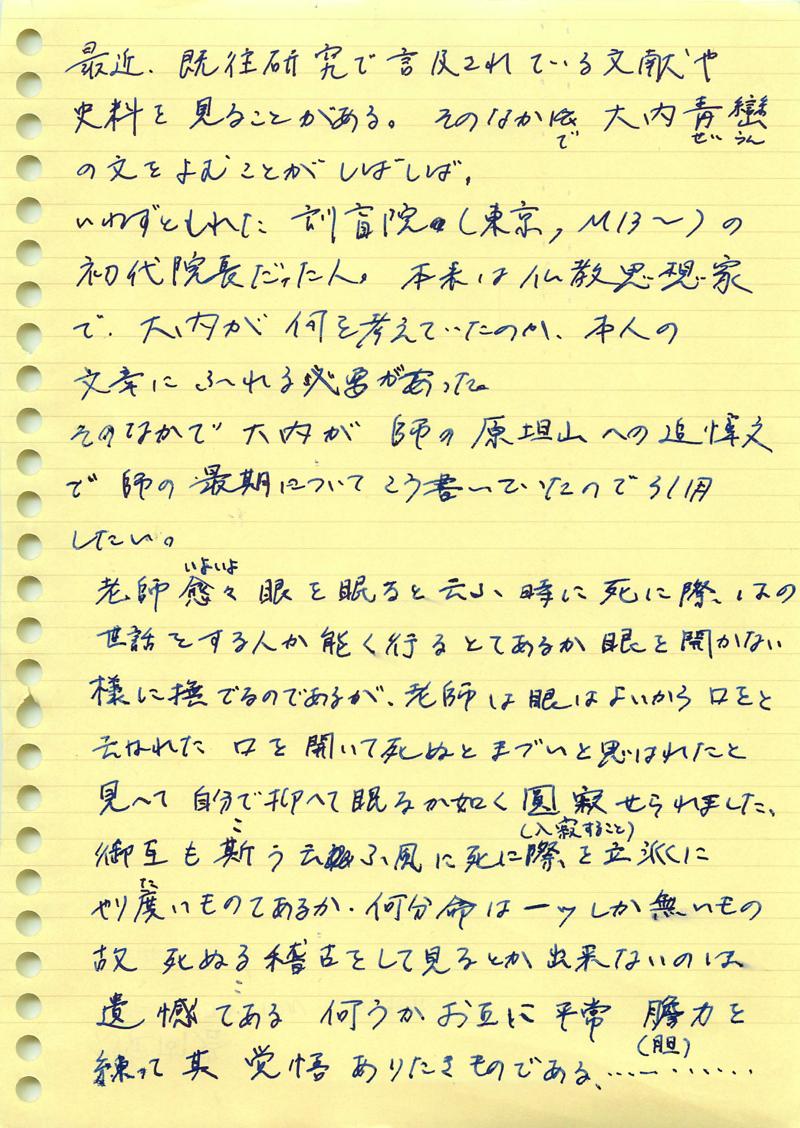 最近、既往研究で言及されている文献や
史料を見ることがある。そのなかで 大内青巒
ぜい らん
の文をよむことがしばしば。
いわずともれた 訓盲院(東京, M13〜)の
初代院長だった人。本来は仏教思想家
で、大内が何を考えていたのか、本人の
文章にふれる必要があった。
そのなかで大内が 師の原坦山への追悼文
で師の最期についてこう書いていたので引用
したい。
いよいよ
老師愈々眼を眠ると云ふ時に死に際、はの
世話をする人か能く行るとてあるか眼を開かない
様に撫でるのであるが、老師は眼はよいから口をと
云はれた 口を開いて死ぬとまづいと思はれたと
見へて自分で抑へて眠るか如く圓寂せられました、
(入寂すること)
御互も斯う云ふ風に死に際を立派に
こ
やり度いものてあるか、何分命は一ツしか無いもの
た
故 死ぬる稽古をして見るとか出来ないのは、
遺憾てある 何うかお互に平常 膽力を
(胆)
練って其覚悟ありたきものである、…………